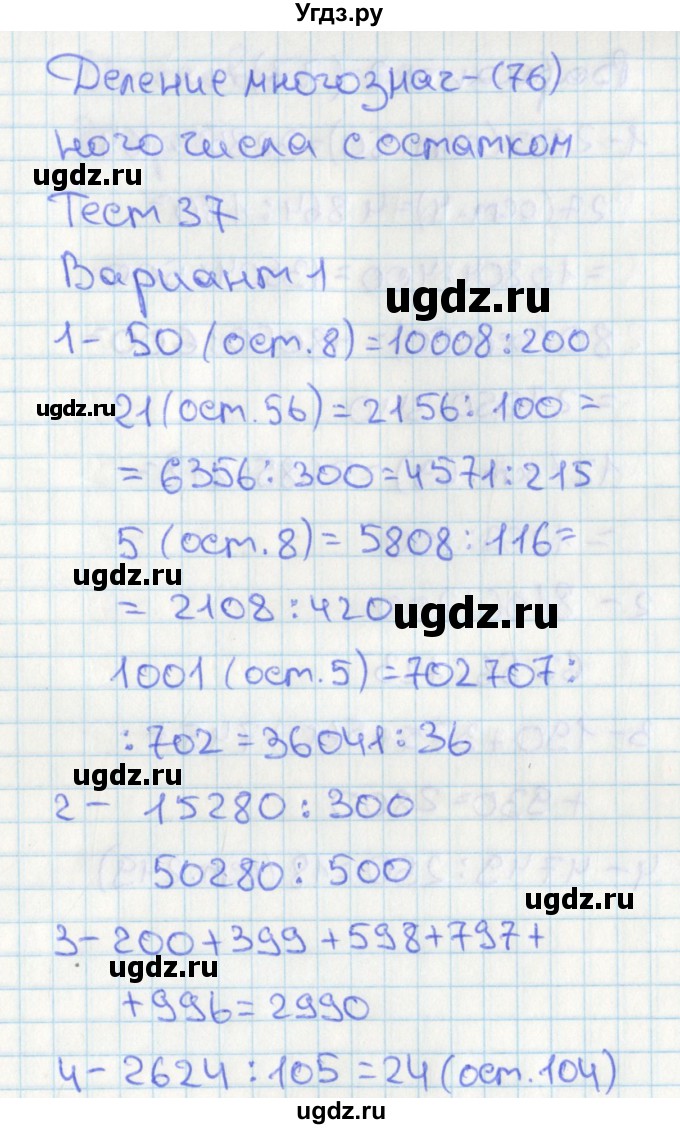 Угдз.ру
Деление многознач-(76)
ного числа с остатком
ugdz.ru
Тест 37
Вариант 1
ugdz.ru
1- 50 (ост. 8) = 10008 : 200
ugdz.ru
21 (ост. 56) = 2156 : 100 =
= 6356 : 300 = 4571 : 215
5 (ост. 8) = 5808 : 116 =
ugdz.ru
= 2108 : 420
ugdz.ru
1001 (ост. 5) = 702707 :
: 702 = 36041 : 36
ugdz.ru
2 - 15280 : 300
50280 : 500
ugdz.ru
3 - 200 + 399 + 598 + 797 +
ugdz.ru
+ 996 = 2990
4 - 2624 : 105 = 24 (ост. 104)
ugdz.ru